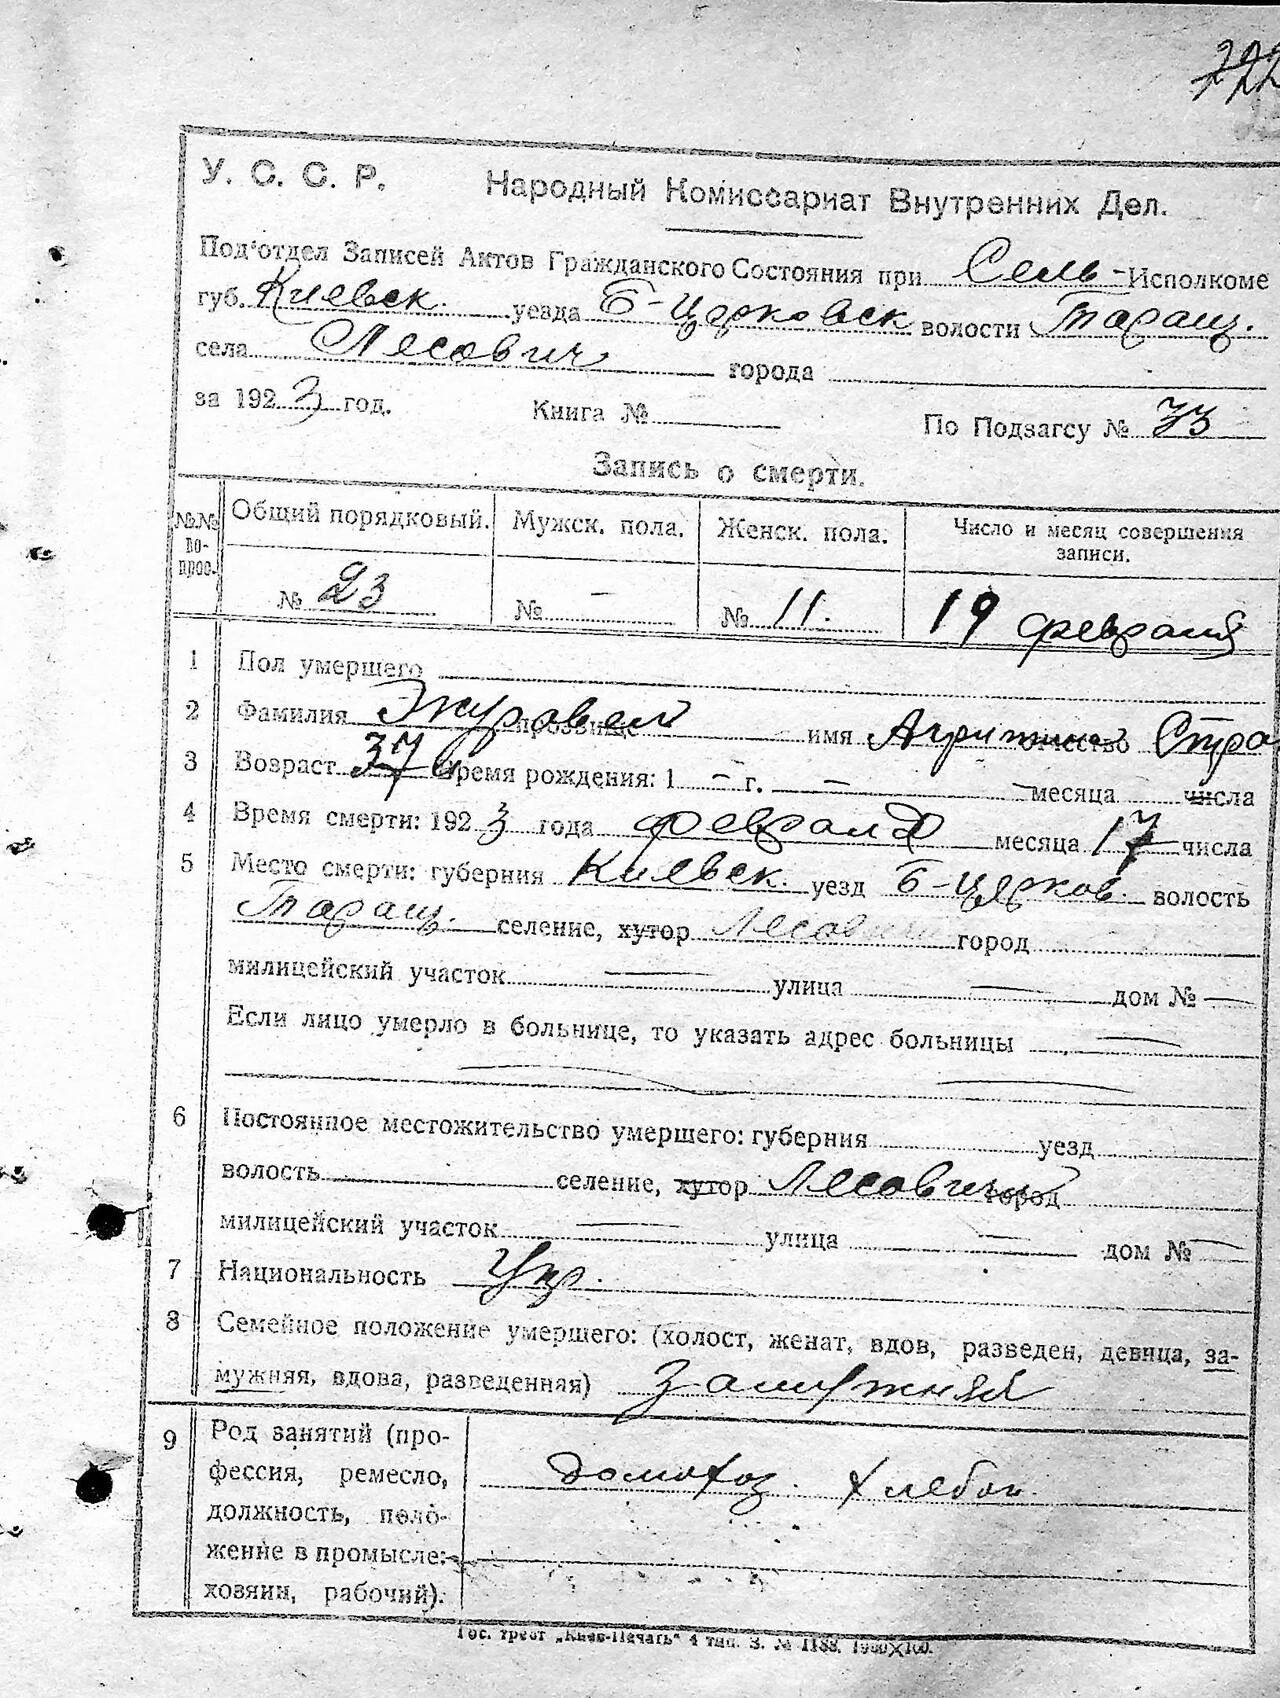 722
У. С. С. Р. Народный Комиссариат Внутренних Дел.
Под'отдел Записей Актов Гражданского Состояния при Сель-Исполкоме
губ. Киевск. уезда Б-Церковск волости Таращ.
села Лесович города
за 1923 год. Книга № По Подзагсу № 33
Запись о смерти.
№№ вопрос. Общий порядковый. Мужск. пола. Женск. пола. Число и месяц совершения записи.
№ 23 № — № 11. 19 февраля
1 Пол умершего
2 Фамилия Журавель прозвище имя отчество Стра
3 Возраст 37 Время рождения: 1 — г. — месяца числа
4 Время смерти: 1923 года февраля месяца 17 числа
5 Место смерти: губерния Киевск. уезд Б-церков. волость
Таращ. селение, хутор Лесовичи город
милицейский участок — улица — дом № —
Если лицо умерло в больнице, то указать адрес больницы —
6 Постоянное местожительство умершего: губерния уезд
волость селение, хутор Лесовичи город
милицейский участок — улица — дом № —
7 Национальность Укр.
8 Семейное положение умершего: (холост, женат, вдов, разведен, девица, за-
мужняя, вдова, разведенная) Замужняя
9 Род занятий (про-
фессия, ремесло, домохоз. хлебоп.
должность, поло-
жение в промысле:
хозяин, рабочий).
Гос. трест „Киев-Печать" 4 тип. З. № 1188.